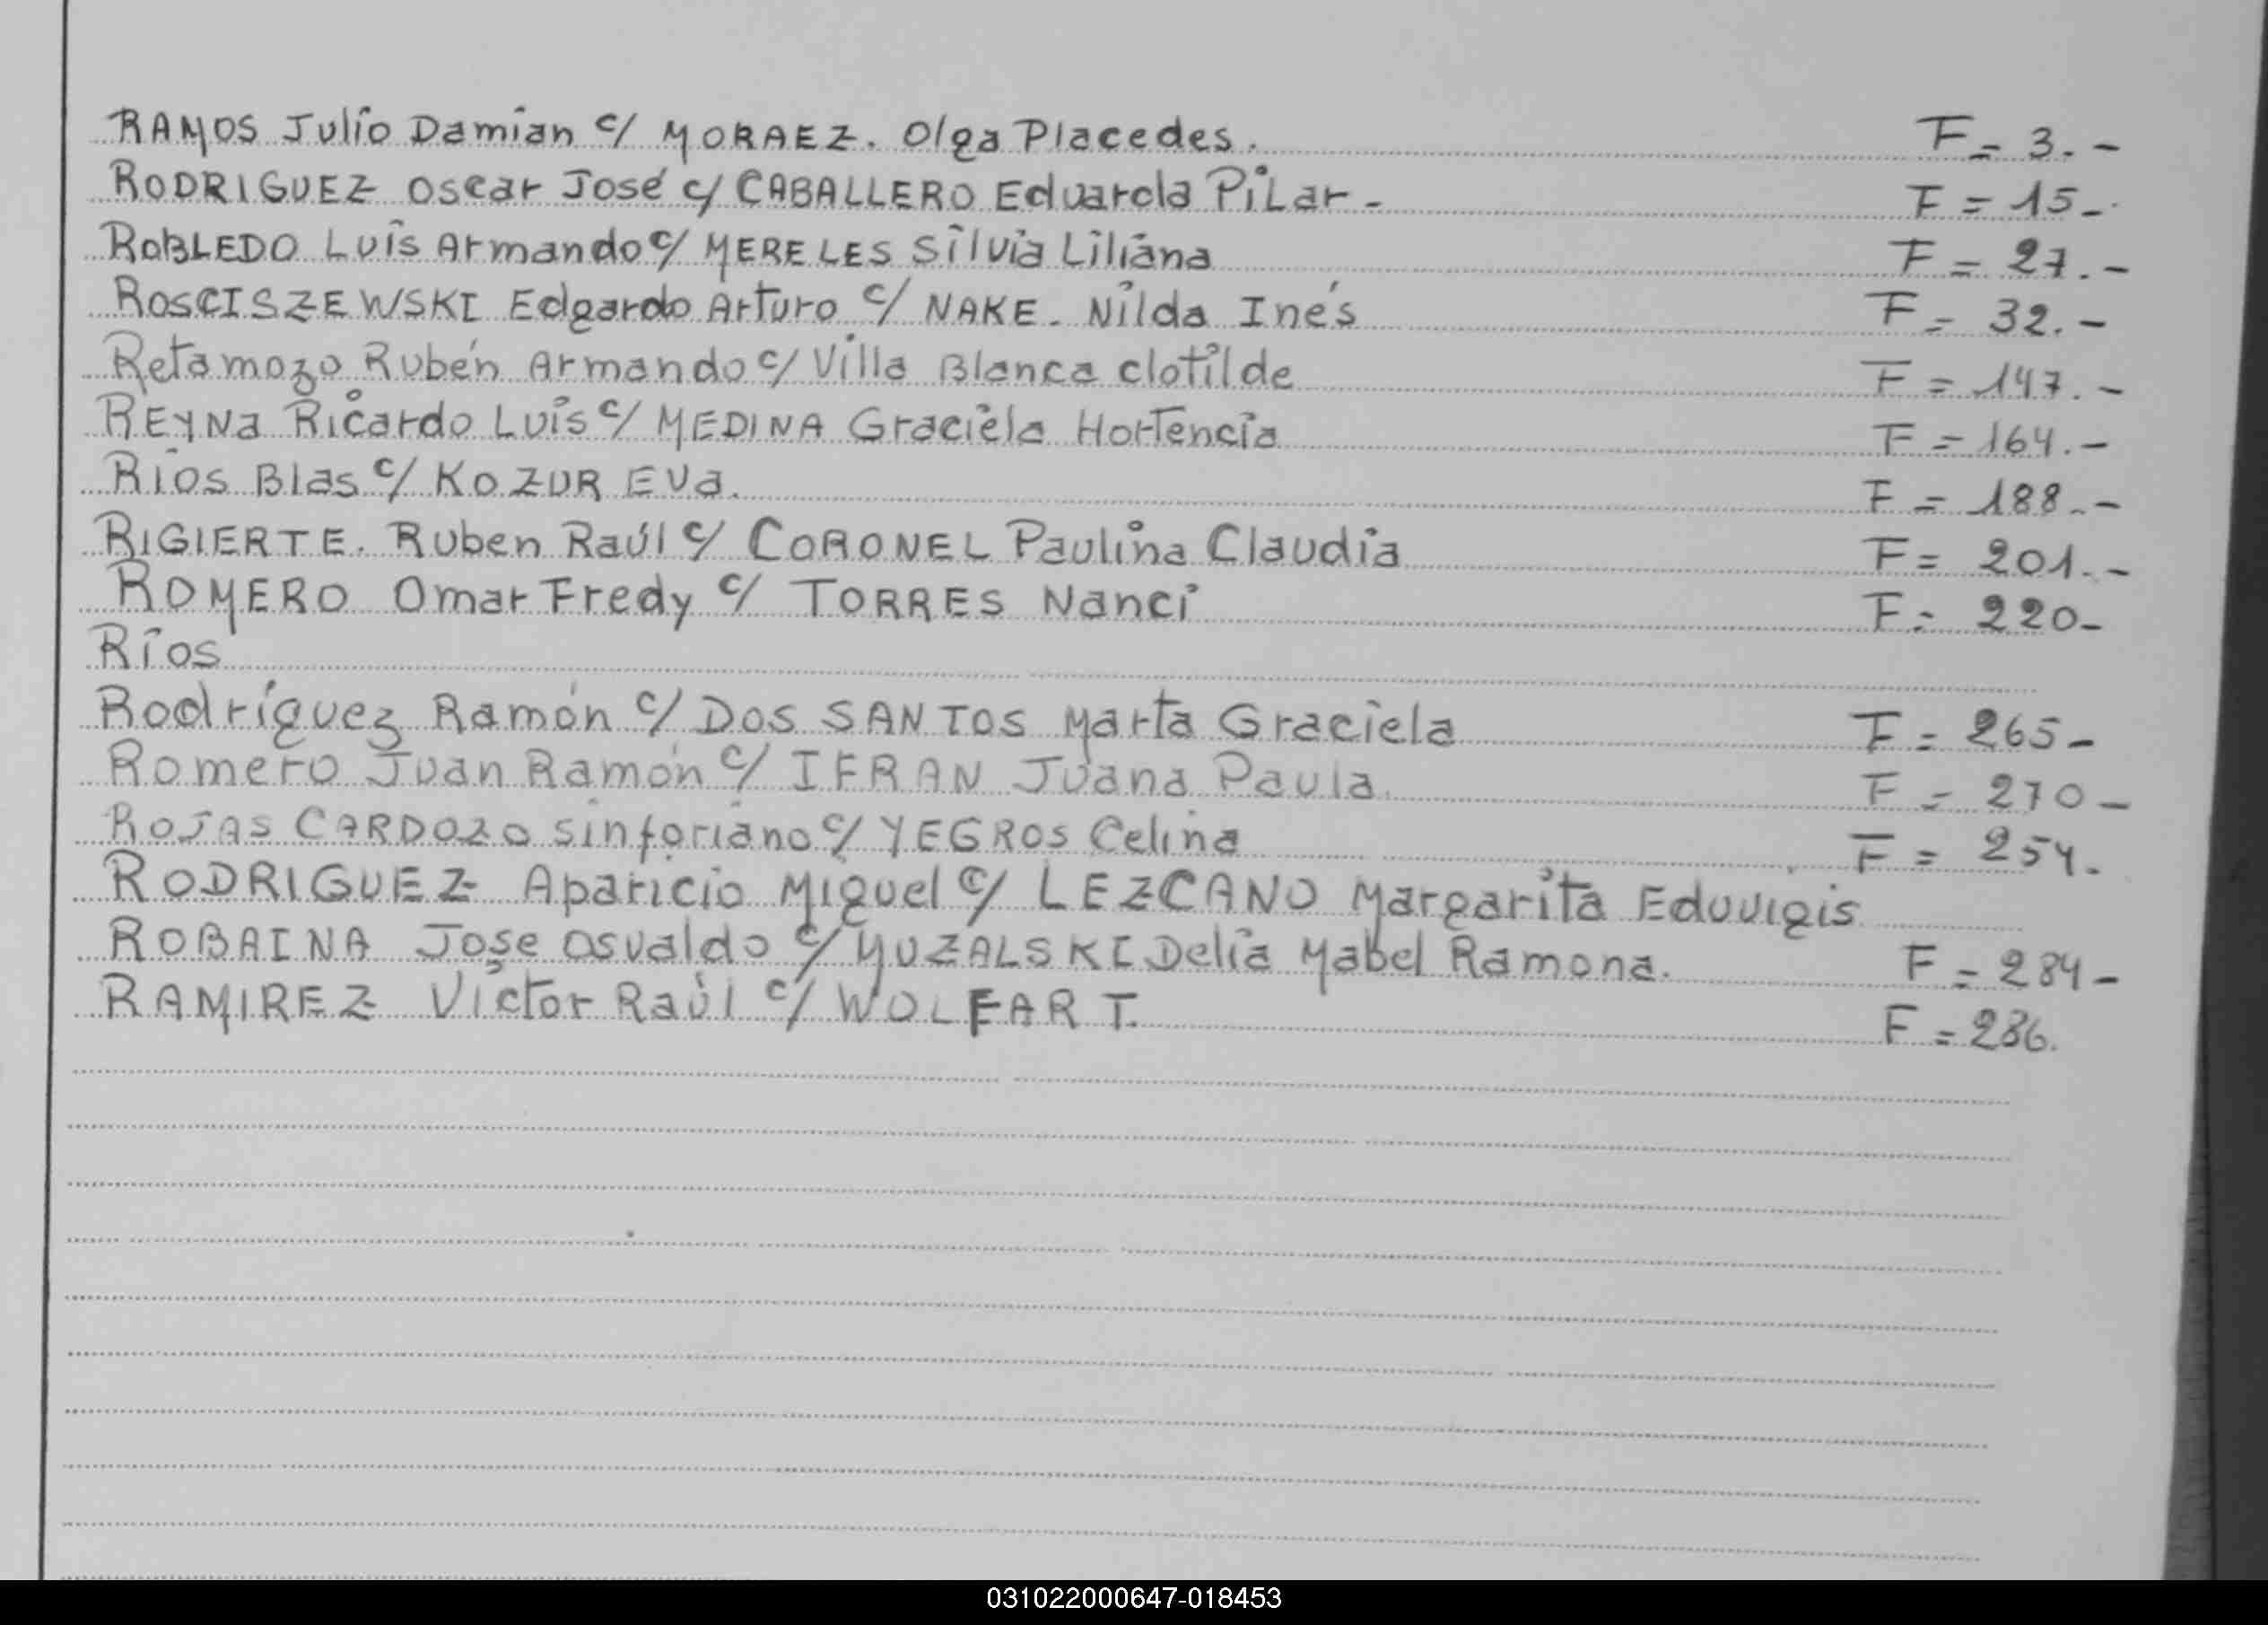 RAMOS Julio Damian c/ MORAEZ. Olga Placedes. F = 3.-
RODRIGUEZ Oscar José c/ CABALLERO Eduarda PiLar - F = 15-
ROBLEDO Luis Armando c/ MERELES Silvia Liliana F = 27.-
ROSCISZEWSKI Edgardo Arturo c/ NAKE. Nilda Inés F = 32.-
Retamozo Rubén Armando c/ Villa Blanca clotilde F = 147.-
REYNa Ricardo Luis c/ MEDINA Graciela Hortencia F = 164.-
Rios Blas c/ KOZUR Eva. F = 188.-
RIGIERTE. Ruben Raúl c/ CORONEL Paulina Claudia F = 201.-
ROMERO Omar Fredy c/ TORRES Nanci F = 220-
Ríos
Rodríguez Ramón c/ DOS SANTOS Marta Graciela F = 265-
Romero Juan Ramón c/ IFRAN Juana Paula. F = 270-
ROJAS CARDOZO sinforiano c/ YEGROS Celina F = 254.
RODRIGUEZ Aparicio Miguel c/ LEZCANO Margarita Eduvigis
ROBAINA Jose Osvaldo c/ YUZALSKI Delia Mabel Ramona. F = 284-
RAMIREZ Víctor Raúl c/ WOLFART. F = 286.
031022000647-018453